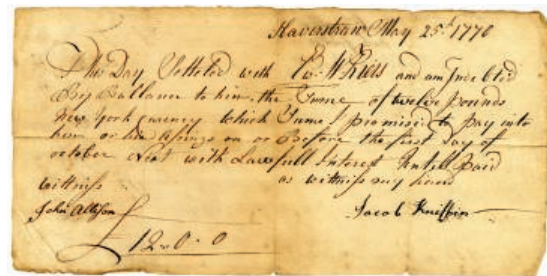 Haverstraw May 25th 1776
This Day Setteled with and am Indebted
By Ballance to him the Sume of twelve pounds
New York Currency which Sume I promise to pay unto
him or his Asings on or Before the first Day of
october Next with Lawfull Interest Untill Paid
Wittness as wittness my hand
John Allison Jacob Kniffin
£12-0-0